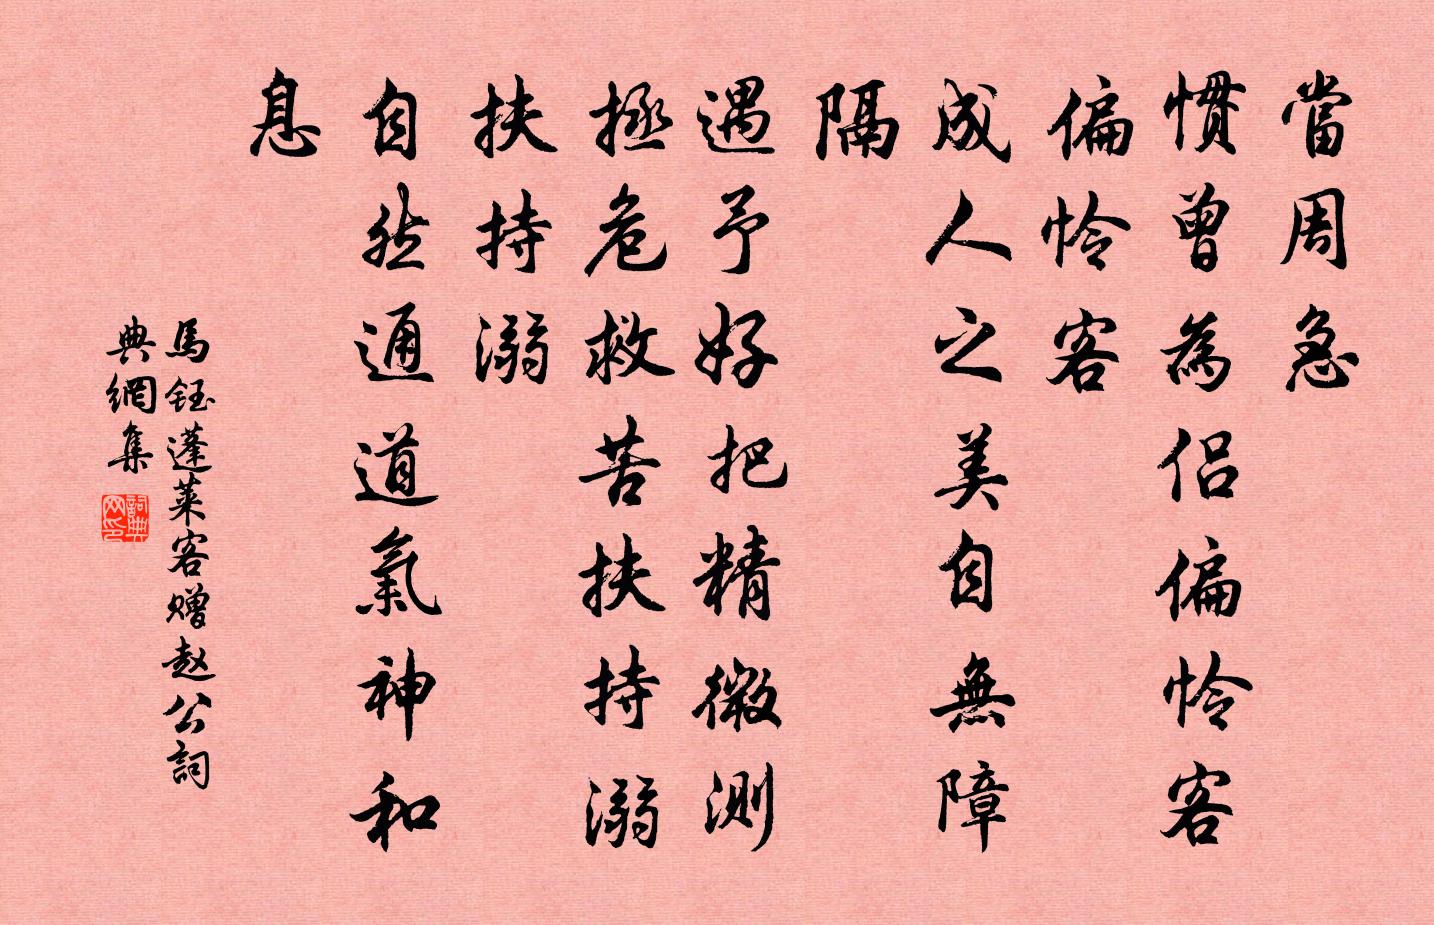 當周急
慣曾為侣偏怜客
偏怜客
成人之美自無障
隔
遇予好把精微測
拯危救苦扶持溺
扶持溺
自然通道氣神和
息
馬鈺蓬莱客赠赵公詞
典網集
詞典網印